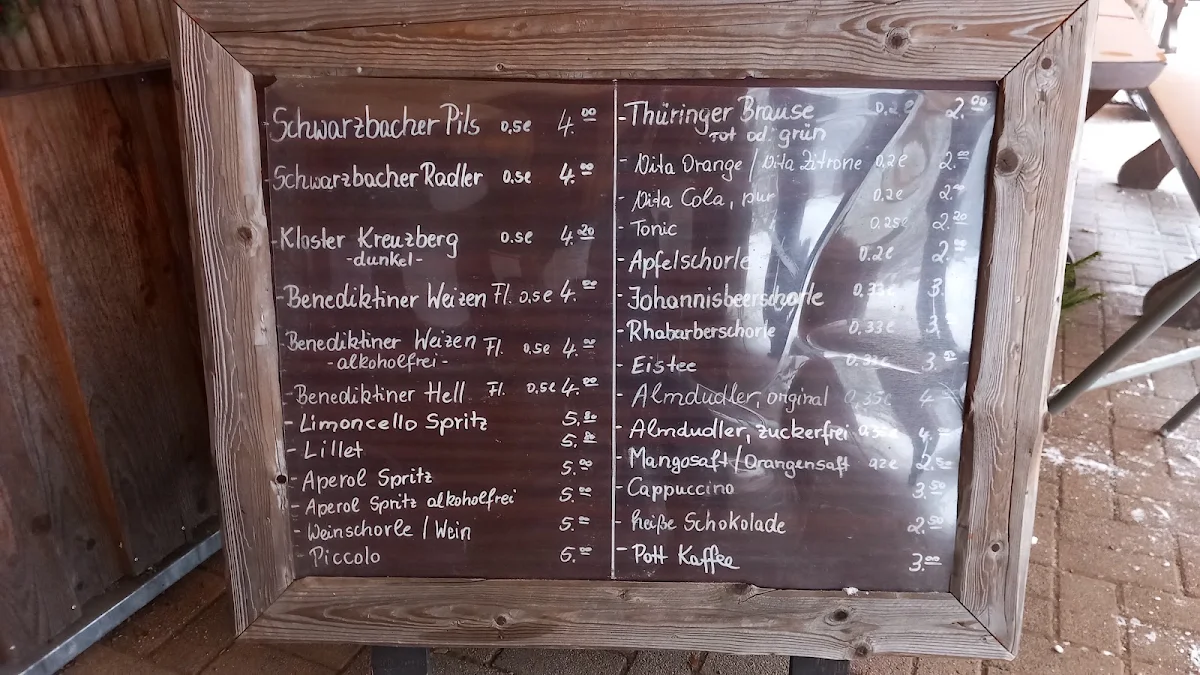 -Schwarzbacher Pils 0,5l 4.00
-Schwarzbacher Radler 0.5l 4.00
-Kloster Kreuzberg 0.5l 4.20
-dunkel-
-Benediktiner Weizen Fl. 0,5l 4.00
-Benediktiner Weizen Fl. 0,5l 4.00
-alkoholfrei-
-Benediktiner Hell Fl. 0,5l 4.00
-Limoncello Spritz 5.80
-Lillet 5.
-Aperol Spritz 5.00
-Aperol Spritz alkoholfrei 5.00
-Weinschorle / Wein 5.00
-Piccolo
-Thüringer Brause 0,2l 2.00
rot od. grün
-Vita Orange / Vita Zitrone 0,2l 2.00
-Vita Cola, pur 0,2l 2.
-Tonic 0,25l 2.20
-Apfelschorle 0.2l 2.00
-Johannisbeerschorle 0,33l 3.
-Rhabarberschorle 0,33l 3.
-Eistee 0,33l 3.
-Almdudler, original 0,35l 4
-Almdudler, zuckerfrei 4.
-Mangosaft / Orangensaft 2.50
-Cappuccino 3.50
-heiße Schokolade 2.50
-Pott Kaffee 3.00